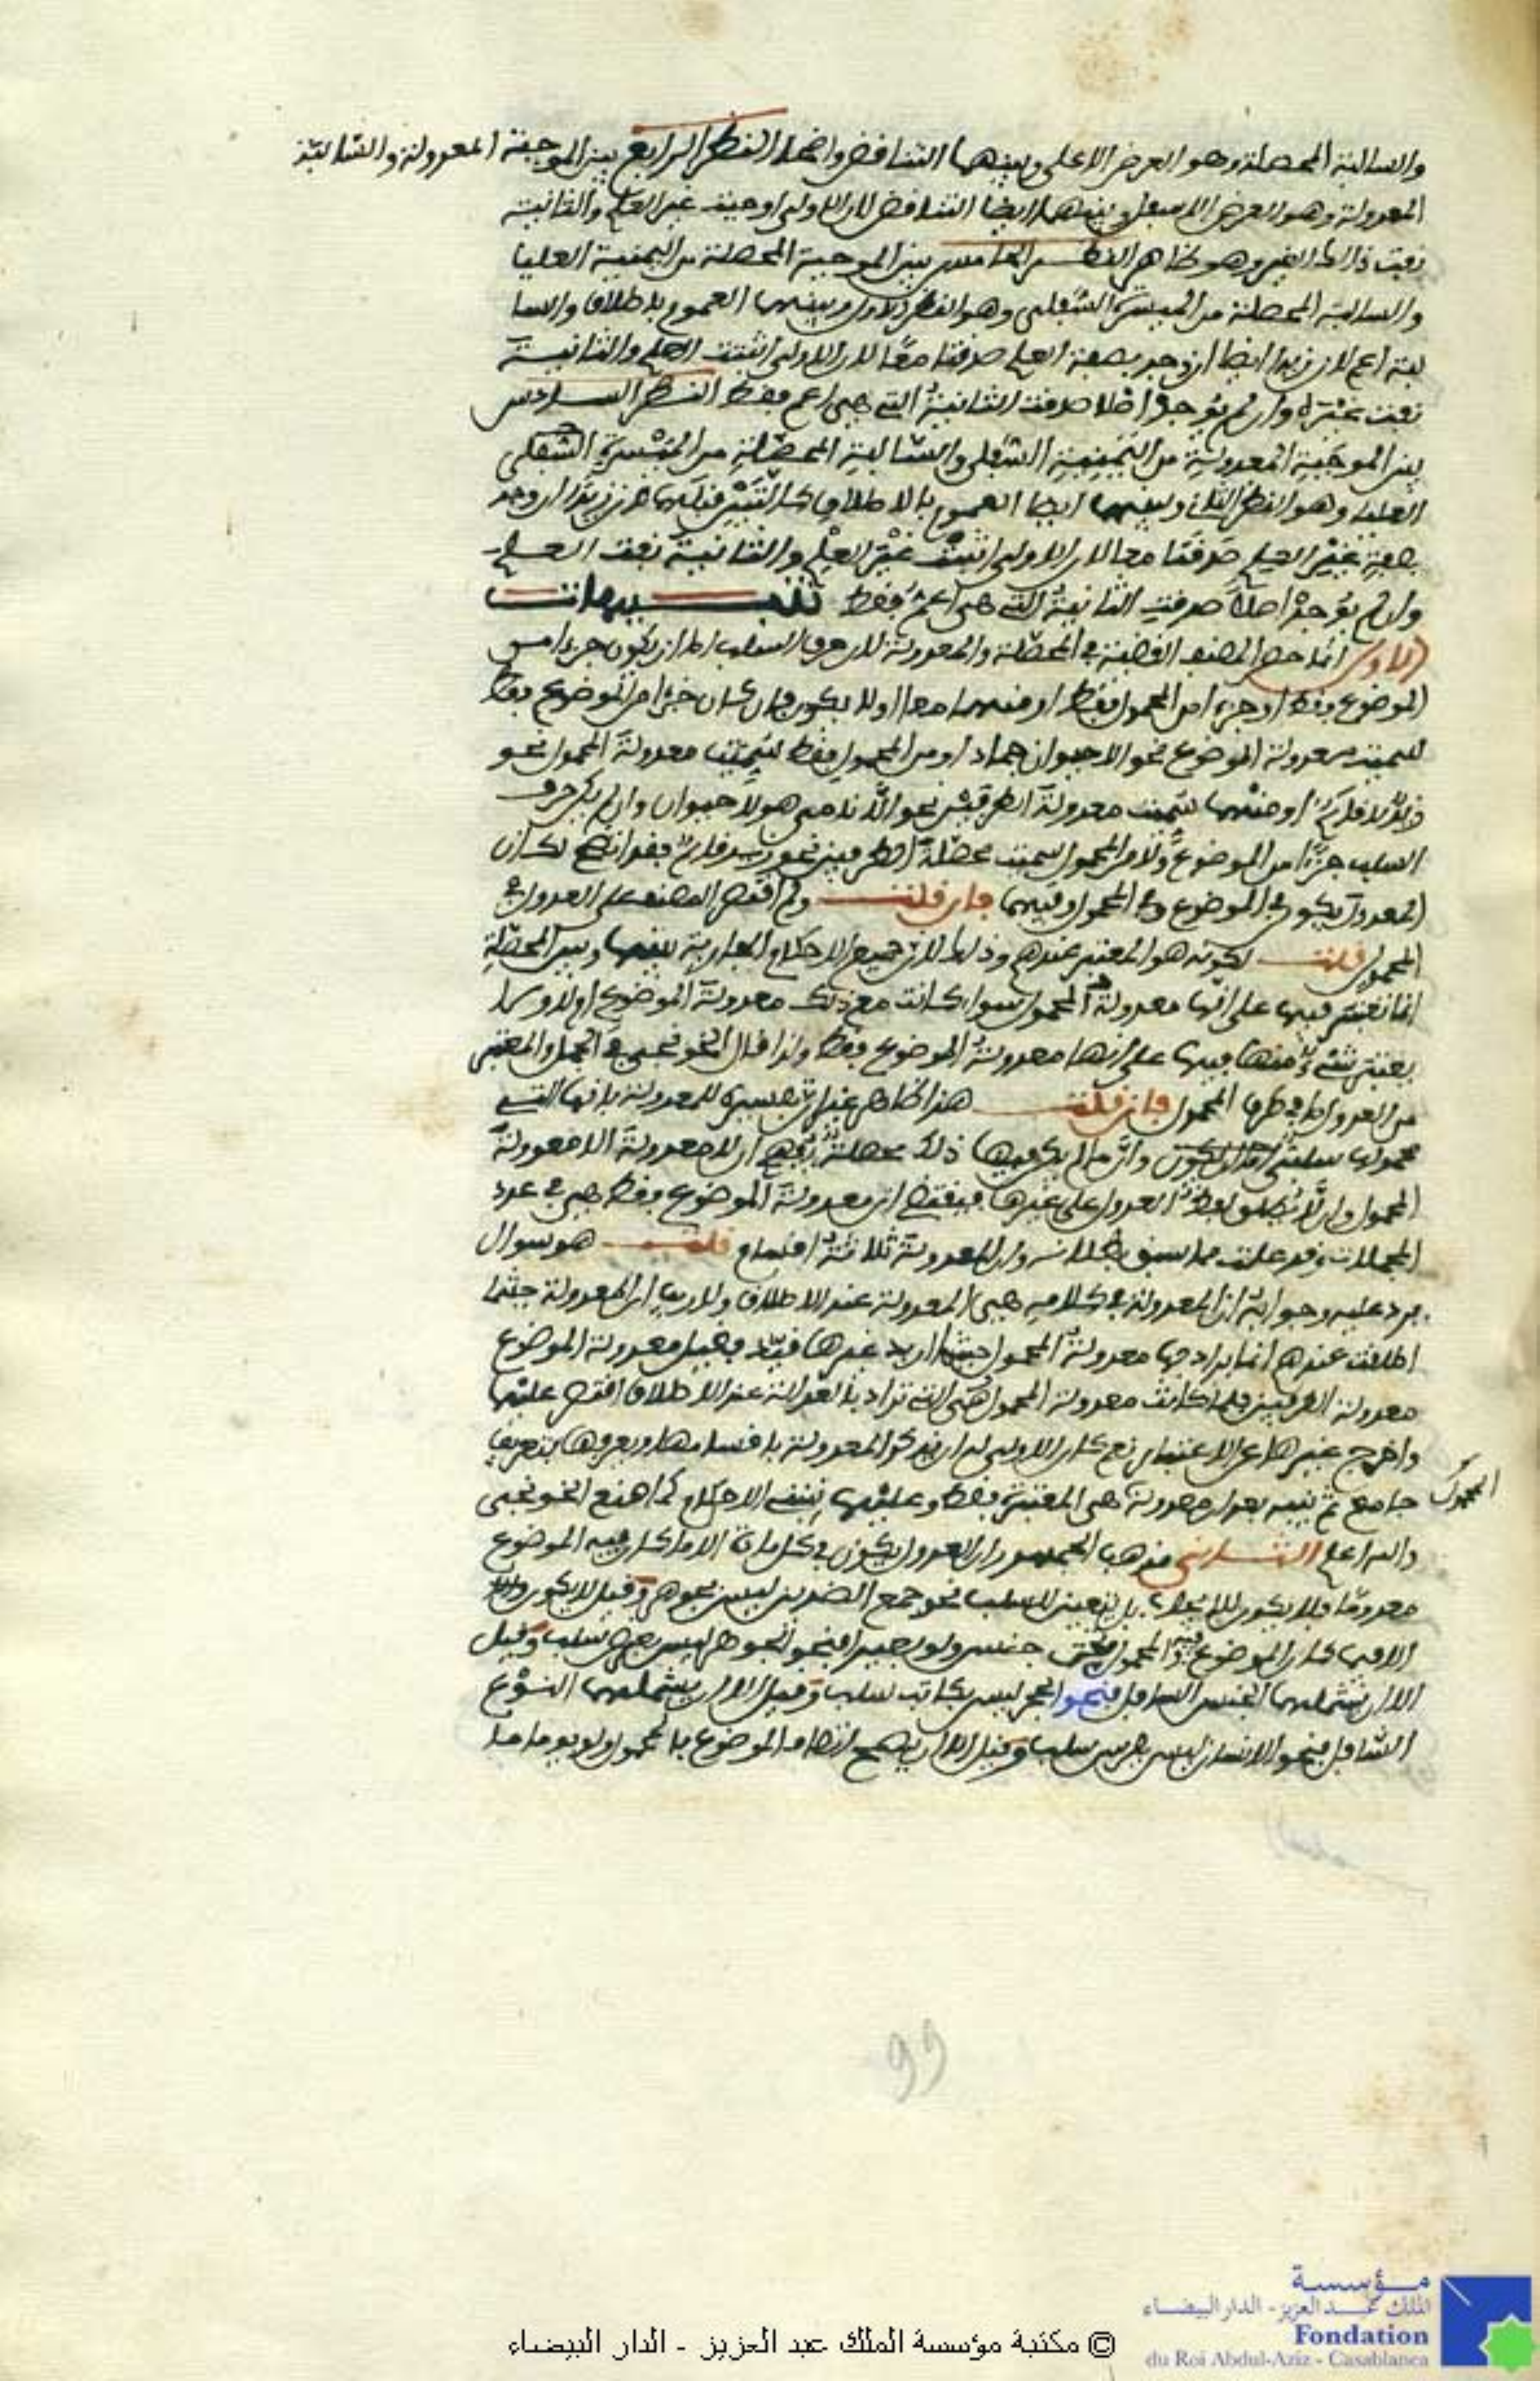 والسالبة المحصلة وهو العرض الاعلى وبينهما التناقض وايضا النظر الرابع بين الموجبة المعدولة والسالبة
المعدولة وهو العرض الاسفل وبينهما ايضا التناقض لان الاولى اوجبت غير العلم والثانية
نفت ذلك الغير وهو ظاهر النظر الخامس بين الموجبة المحصلة من اليمنية العليا
والسالبة المحصلة من الميسرة السفلى وهو القطر الاول وبينهما العموم باطلاق والسا
لبة اعم لان زيدا ايضا ان وجد بصفة العلم صدقتا معا لان الاولى اثبتت العلم والثانية
نفت غيره وان لم يوجد اصلا صدقت الثانية التي هي اعم فقط النظر السادس
بين الموجبة المعدولة من اليمينية السفلى والسالبة المحصلة من الميسرة السفلى
العليا وهو القطر الثاني وبينهما ايضا العموم بالاطلاق كالتي قبلها لان زيدا ان وجد
بصفة غير العلم صدقتا معا لان الاولى اثبتت غير العلم والثانية نفت العلم
وان لم يوجد اصلا صدقت الثانية التي هي اعم فقط تنبيهات
الاول انما حصر المصنف القضية في المحصلة والمعدولة لان حرف السلب اما ان يكون جزءا من
الموضوع فقط او جزءا من المحمول فقط او منهما معا او لا يكون فان كان جزءا من الموضوع فقط
سميت معدولة الموضوع نحو الاحيوان جماد او من المحمول فقط سميت معدولة المحمول نحو
زيد لا قائم او منهما سميت معدولة الطرفين نحو اللا نامي هو لا حيوان وان لم يكن حرف
السلب جزءا من الموضوع ولا من المحمول سميت محصلة الطرفين نحو زيد قائم فقد اتضح لك ان
المعدول يكون في الموضوع وفي المحمول وفيهما فان قلت ولم اقتصر المصنف على العدول في
المحمول قلت لكونه هو المعتبر عندهم وذلك لان جميع الاحكام الجارية بينها وبين المحصلة
انما تعتبر فيها على انها معدولة المحمول سواء كانت مع ذلك معدولة الموضوع او لا ولا
يعتبر شيء منها فيها على انها معدولة الموضوع فقط ولذا قال الخونجي في الجمل والمعتبر
من العدول ما في طرف المحمول فان قلت هذا ظاهر غير ان تفسيره للمعدولة بانها التي
محمولها سلبي وان ما لم يكن فيها ذلك محصلة يوهم ان لا معدولة الا معدولة
المحمول وان لا يطلق لفظ العدول على غيرها فيقتضي ان معدولة الموضوع فقط هي في عدد
المحصلات وقد علمت مما سبق بطلانه وان المعدولة ثلاثة اقسام قلت هو سوال
يرد عليه وجوابه ان المعدولة في كلامهم هي المعدولة عند الاطلاق ولا ريب ان المعدولة حيثما
اطلقت عندهم انما يراد بها معدولة المحمول وحيثما اريد غيرها قيد فقيل معدولة الموضوع
معدولة الطرفين فلما كانت معدولة المحمول هي التي تراد بالمعدولة عند الاطلاق اقتصر عليها
واخرج غيرها عن الاعتبار نعم كان الاولى له ان يذكر المعدولة باقسامها ويعرفها بتعريف
جامع ثم ينبه بعد ان معدولة المحمول هي المعتبرة فقط وعليها تنبني الاحكام كما صنع الخونجي
والله اعلم الثاني مذهب الجمهور ان العدول يكون في كل مادة الا ما كان فيه الموضوع
معدوما فلا يكون للايجاب بل يتعين للسلب نحو جمع الضدين ليس بجوهر وقيل لا يكون
الا فيما كان الموضوع والمحمول تحت جنس ولو بعيدا فنحو الجوهر ليس بعرض سلب وقيل
الا ان يشملهما الجنس السافل فنحو الحجر ليس بكاتب سلب وقيل الا ان يشملهما النوع
السافل فنحو الانسان ليس بفرس سلب وقيل الا ان يصح اتصاف الموضوع بالمحمول ولو يوما ما
99
مؤسسة
الملك عبد العزيز - الدار البيضاء
Fondation
du Roi Abdul-Aziz - Casablanca
© مكتبة مؤسسة الملك عبد العزيز - الدار البيضاء